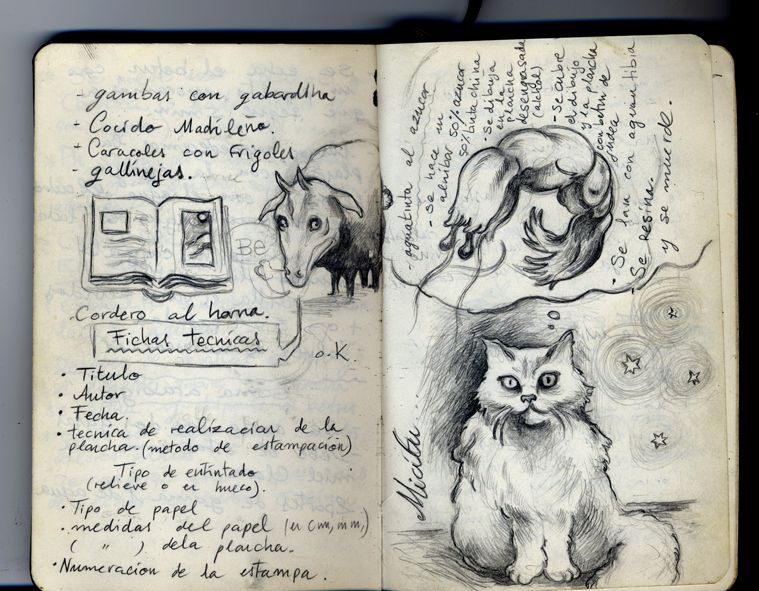 - gambas con gabardina
- Cocido Madrileño.
+ Caracoles con Frigoles
- gallinejas.
Be
- Cordero al horna.
Fichas tecnicas
o.K.
• Titulo
• Autor
• Fecha.
• tecnica de realizacion de la
plancha. (metodo de estampación)
Tipo de entintado
(relieve o en hueco).
• Tipo de papel
• medidas del papel (en cm, mm,)
( " ) dela plancha.
• Numeracion de la estampa.
- aguatinta al azucar
- Se hace un
almibar 50% azucar
50% tinta china
- Se dibuja
en la
plancha
desengrasada
(alcohol)
- Se cubre
el dibujo
y la plancha
con betun de
Judea
- Se lava con agua tibia
- Se resina.
y se muerde.